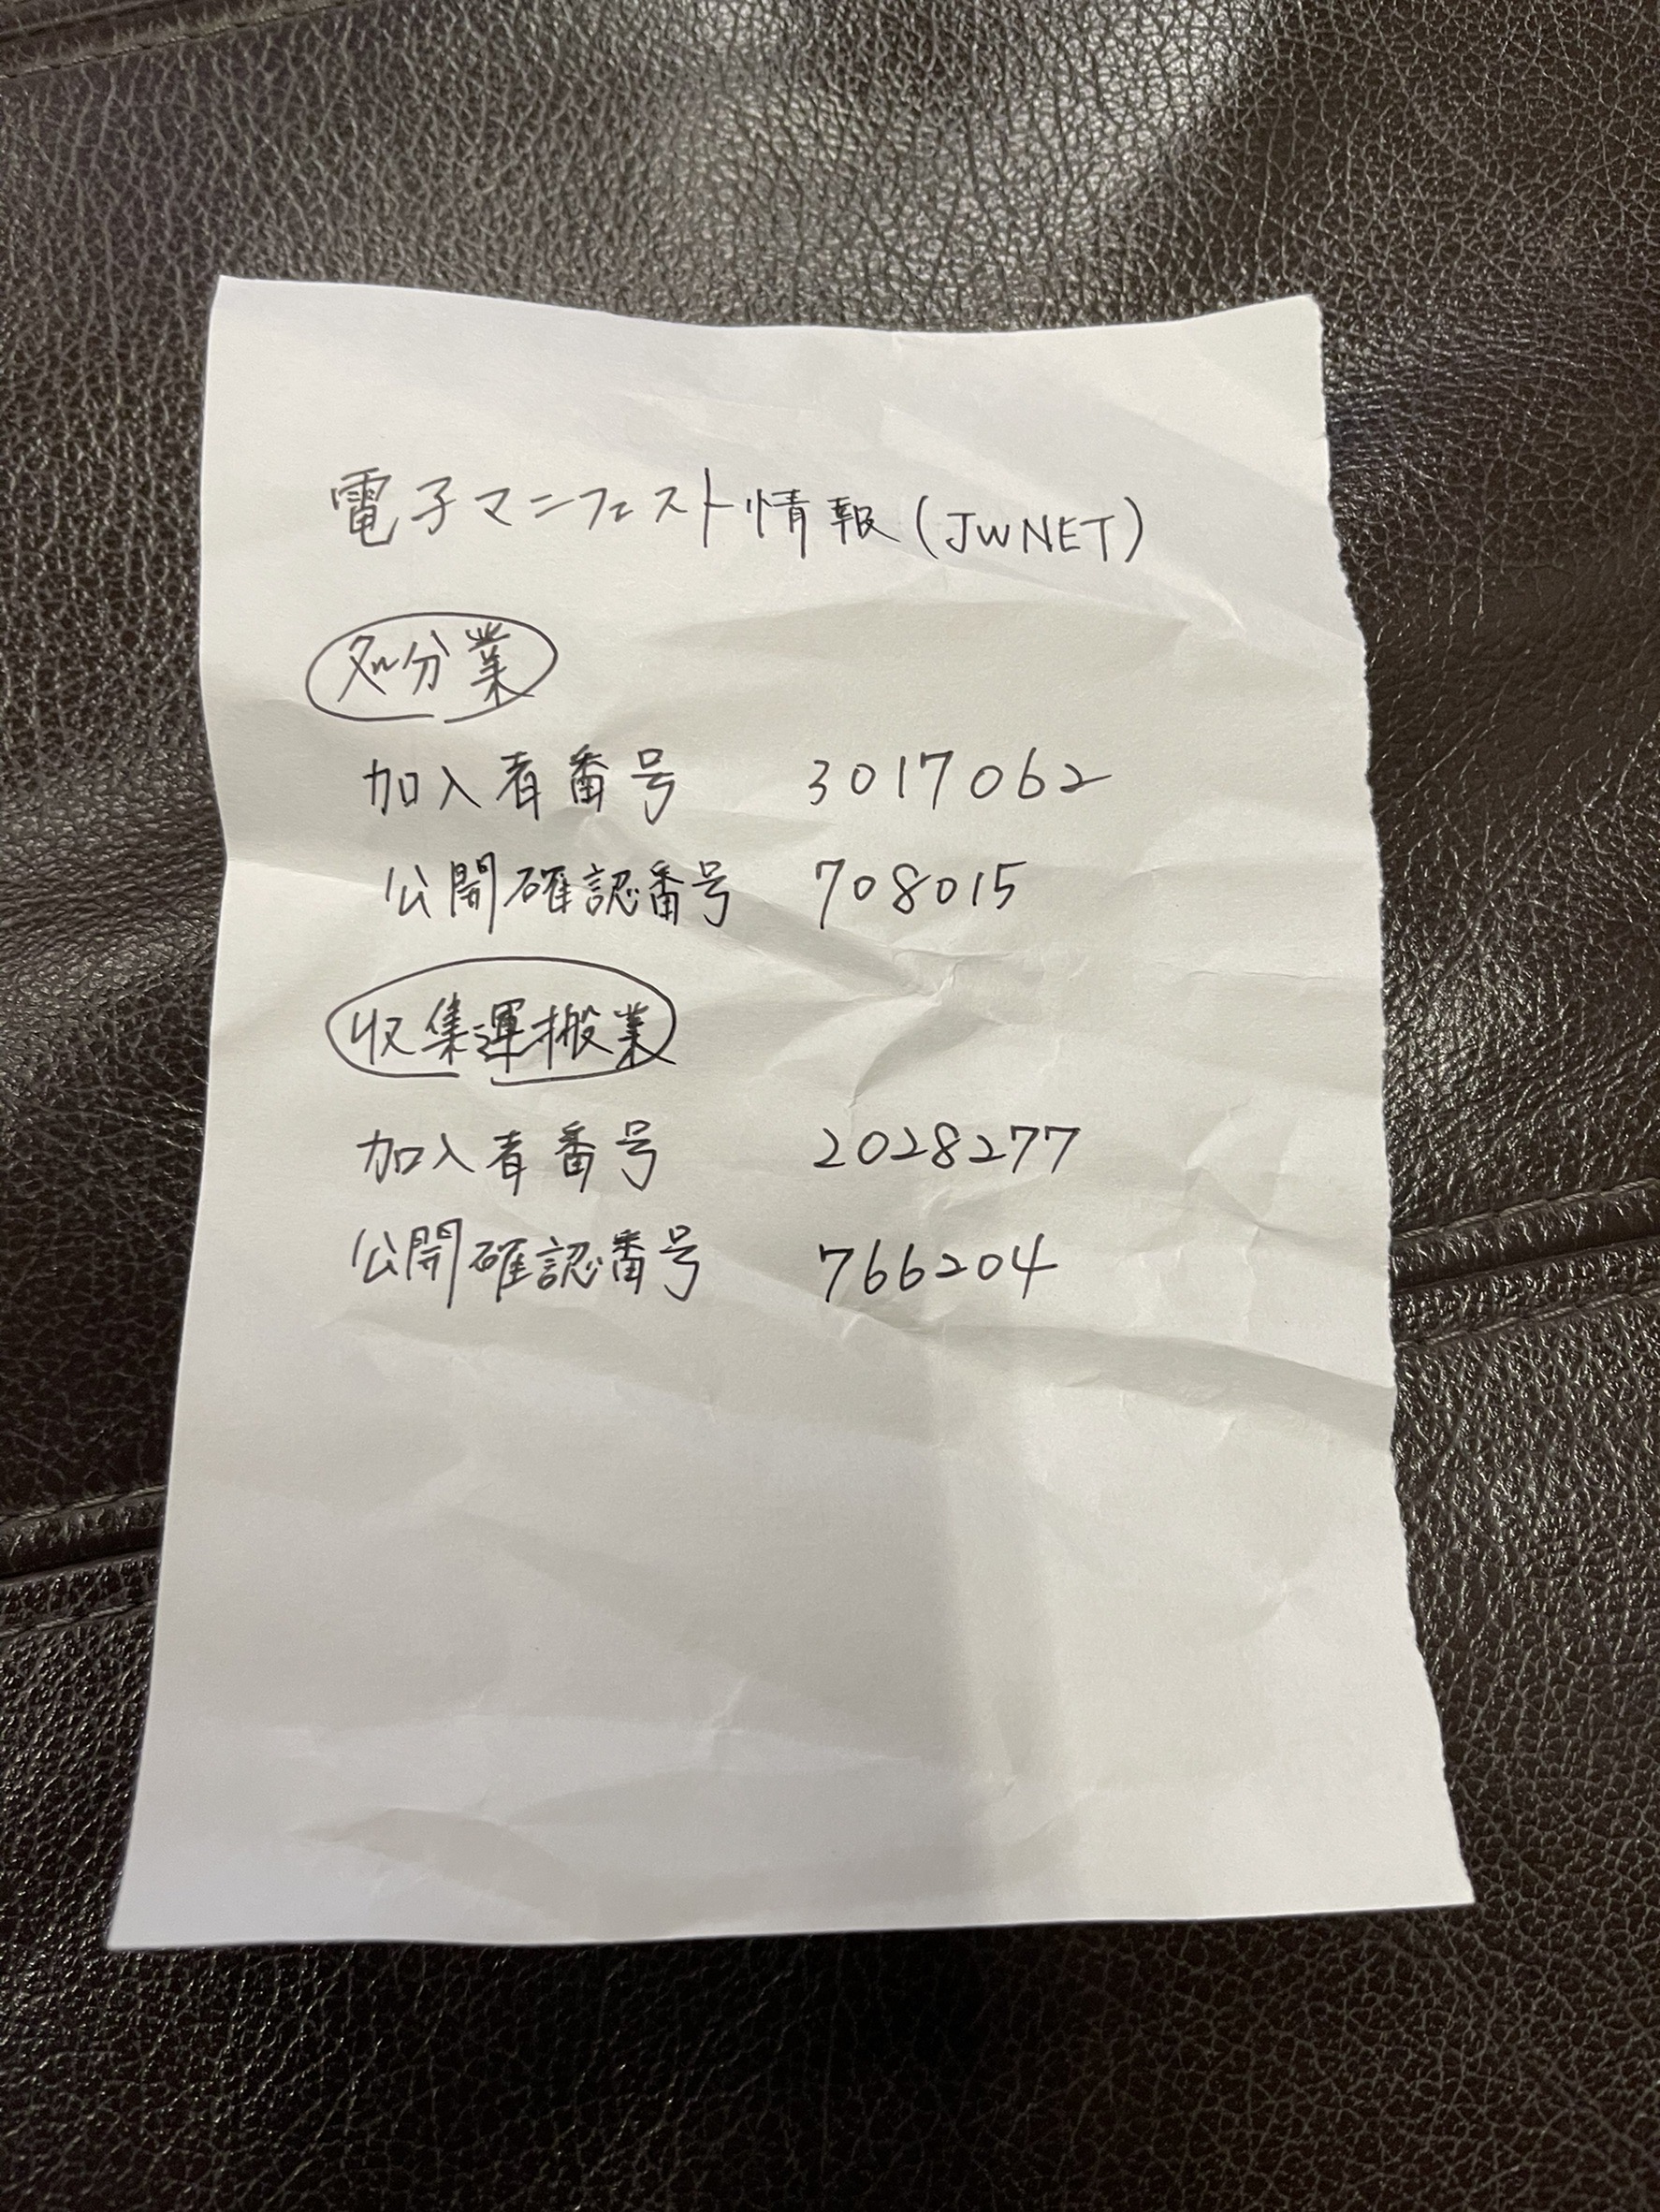 電子マニフェスト情報(JWNET)
処分業
加入者番号 3017062
公開確認番号 708015
収集運搬業
加入者番号 2028277
公開確認番号 766204